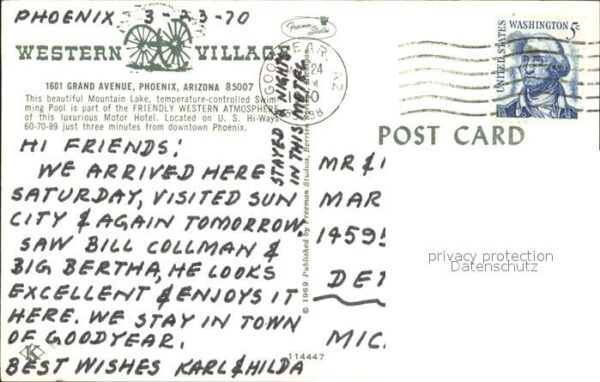 PHOENIX 3-23-70
WESTERN VILLAGE
1601 GRAND AVENUE, PHOENIX, ARIZONA 85007
This beautiful Mountain Lake, temperature-controlled Swim-
ming Pool is part of the FRIENDLY WESTERN ATMOSPHERE
of this luxurious Motor Hotel. Located on U. S. Hi-Ways
60-70-89 just three minutes from downtown Phoenix.
HI FRIENDS!
WE ARRIVED HERE
SATURDAY, VISITED SUN
CITY & AGAIN TOMORROW
SAW BILL COLLMAN &
BIG BERTHA, HE LOOKS
EXCELLENT & ENJOYS IT
HERE. WE STAY IN TOWN
OF GOODYEAR.
BEST WISHES KARL & HILDA
K
STAYED NIGHTS
IN THIS MOTEL
© 1969 Published by Freeman Studios,
114447
GOODYEAR, AZ
24
UNITED STATES
WASHINGTON 5c
POST CARD
MR &
MAR
1459
DET
MIC
privacy protection
Datenschutz